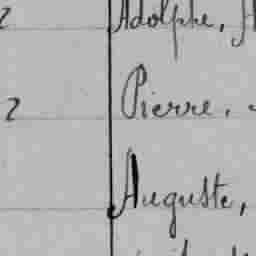 2 Adolphe,
2 Pierre,
Auguste,